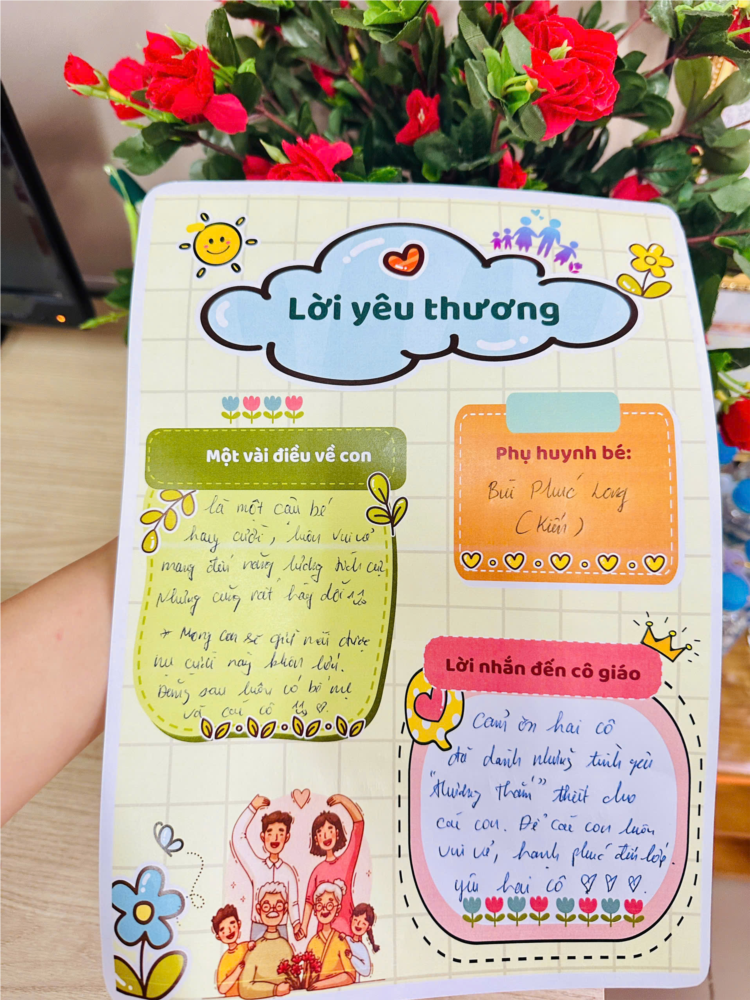 Lời yêu thương
Một vài điều về con
là một cậu bé
hay cười, luôn vui vẻ
mang đến năng lượng tích cực
Nhưng cũng rất hay dỗi
* Mong con sẽ giữ mãi được
nụ cười này khôn lớn.
Đằng sau luôn có bố mẹ
và các cô
Phụ huynh bé:
Bùi Phúc Long
(Kiến)
Lời nhắn đến cô giáo
Cảm ơn hai cô
đã dành những tình yêu
"thương thầm" thiệt cho
các con. Để các con luôn
vui vẻ, hạnh phúc đến lớp.
yêu hai cô